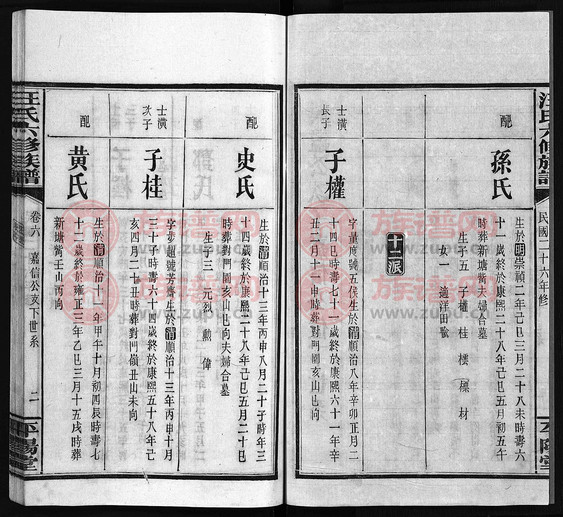 汪氏六修族譜
民國二十六年修
平陽堂
配
孫氏
生於明崇順二年己巳三月二十八未時壽六
十一歲終於康熙二十八年己巳五月初五午
時葬新塘黃夫婦合墓
生子五 子權 桂 樸 標 材
女一 適洋田
十二派
士潢
長子
子權
字重度號五侯生於清順治八年辛卯正月二
十四巳時壽七十一歲終於康熙六十一年辛
丑二月十一申時葬對門園亥山巳向
配
史氏
生於清順治十三年丙申八月二十子時年三
十四歲終於康熙二十八年己巳五月二十巳
時葬對門園亥山巳向夫婦合墓
生子三 元烈 勳 偉
士潢
次子
子桂
字步廷號芳齋生於清順治十三年丙申十月
三十子時壽六十四歲終於康熙五十八年己
亥四月二十丑時葬對門嶺丑山未向
配
黃氏
生於清順治十一年甲午十月初四辰時壽七
十二歲終於雍正三年乙巳三月十五戌時葬
新塘黃壬山丙向
汪氏六修族譜
卷六
嘉信公支下世系
二
平陽堂
族譜网
www.zupu.cn